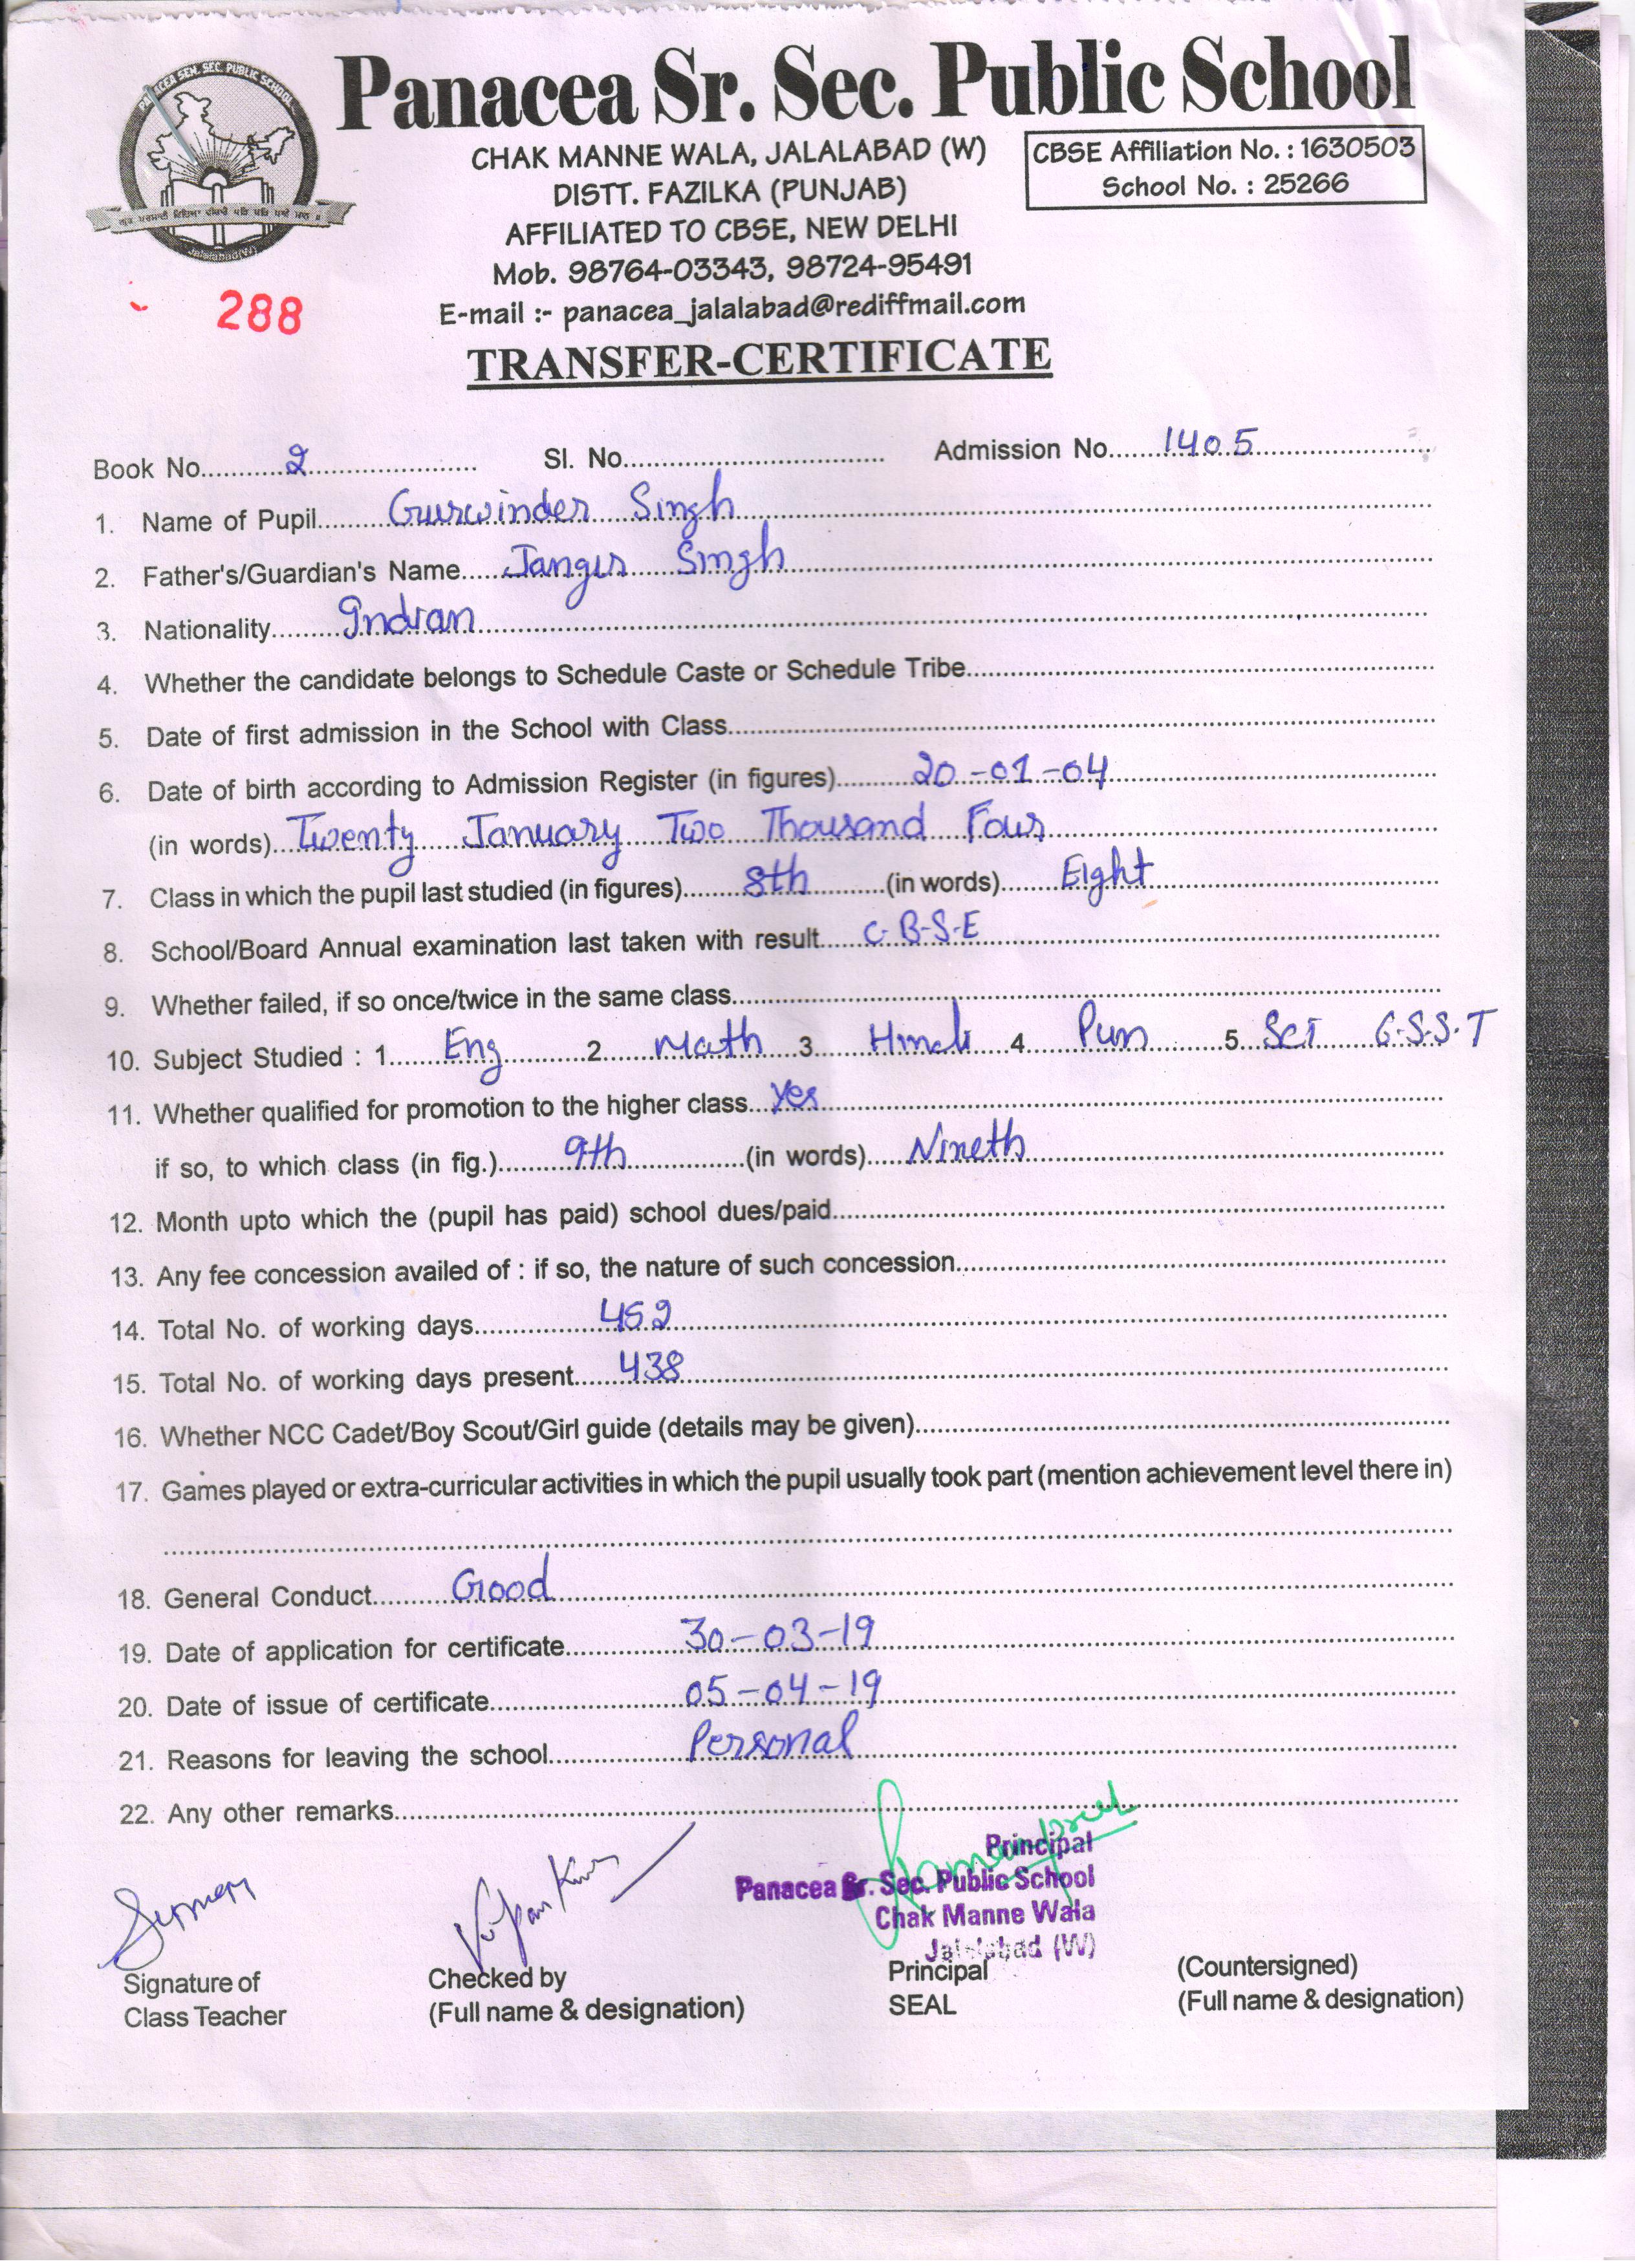 PANACEA SEN. SEC. PUBLIC SCHOOL
Jalalabad(W)
Panacea Sr. Sec. Public School
CHAK MANNE WALA, JALALABAD (W)
DISTT. FAZILKA (PUNJAB)
AFFILIATED TO CBSE, NEW DELHI
Mob. 98764-03343, 98724-95491
E-mail :- panacea_jalalabad@rediffmail.com
CBSE Affiliation No. : 1630503
School No. : 25266
288
TRANSFER-CERTIFICATE
Book No. 2 Sl. No. Admission No. 1405
1. Name of Pupil Gurwinder Singh
2. Father's/Guardian's Name Jangir Singh
3. Nationality Indian
4. Whether the candidate belongs to Schedule Caste or Schedule Tribe
5. Date of first admission in the School with Class
6. Date of birth according to Admission Register (in figures) 20-01-04
(in words) Twenty January Two Thousand Four
7. Class in which the pupil last studied (in figures) 8th (in words) Eight
8. School/Board Annual examination last taken with result C.B.S.E
9. Whether failed, if so once/twice in the same class
10. Subject Studied : 1 Eng 2 Math 3 Hindi 4 Pun 5 Sci 6.S.S.T
11. Whether qualified for promotion to the higher class Yes
if so, to which class (in fig.) 9th (in words) Nineth
12. Month upto which the (pupil has paid) school dues/paid
13. Any fee concession availed of : if so, the nature of such concession
14. Total No. of working days 452
15. Total No. of working days present 438
16. Whether NCC Cadet/Boy Scout/Girl guide (details may be given)
17. Games played or extra-curricular activities in which the pupil usually took part (mention achievement level there in)
18. General Conduct Good
19. Date of application for certificate 30-03-19
20. Date of issue of certificate 05-04-19
21. Reasons for leaving the school Personal
22. Any other remarks
Principal
Panacea Sr. Sec. Public School
Chak Manne Wala
Jalalabad (W)
Signature of
Class Teacher
Checked by
(Full name & designation)
Principal
SEAL
(Countersigned)
(Full name & designation)